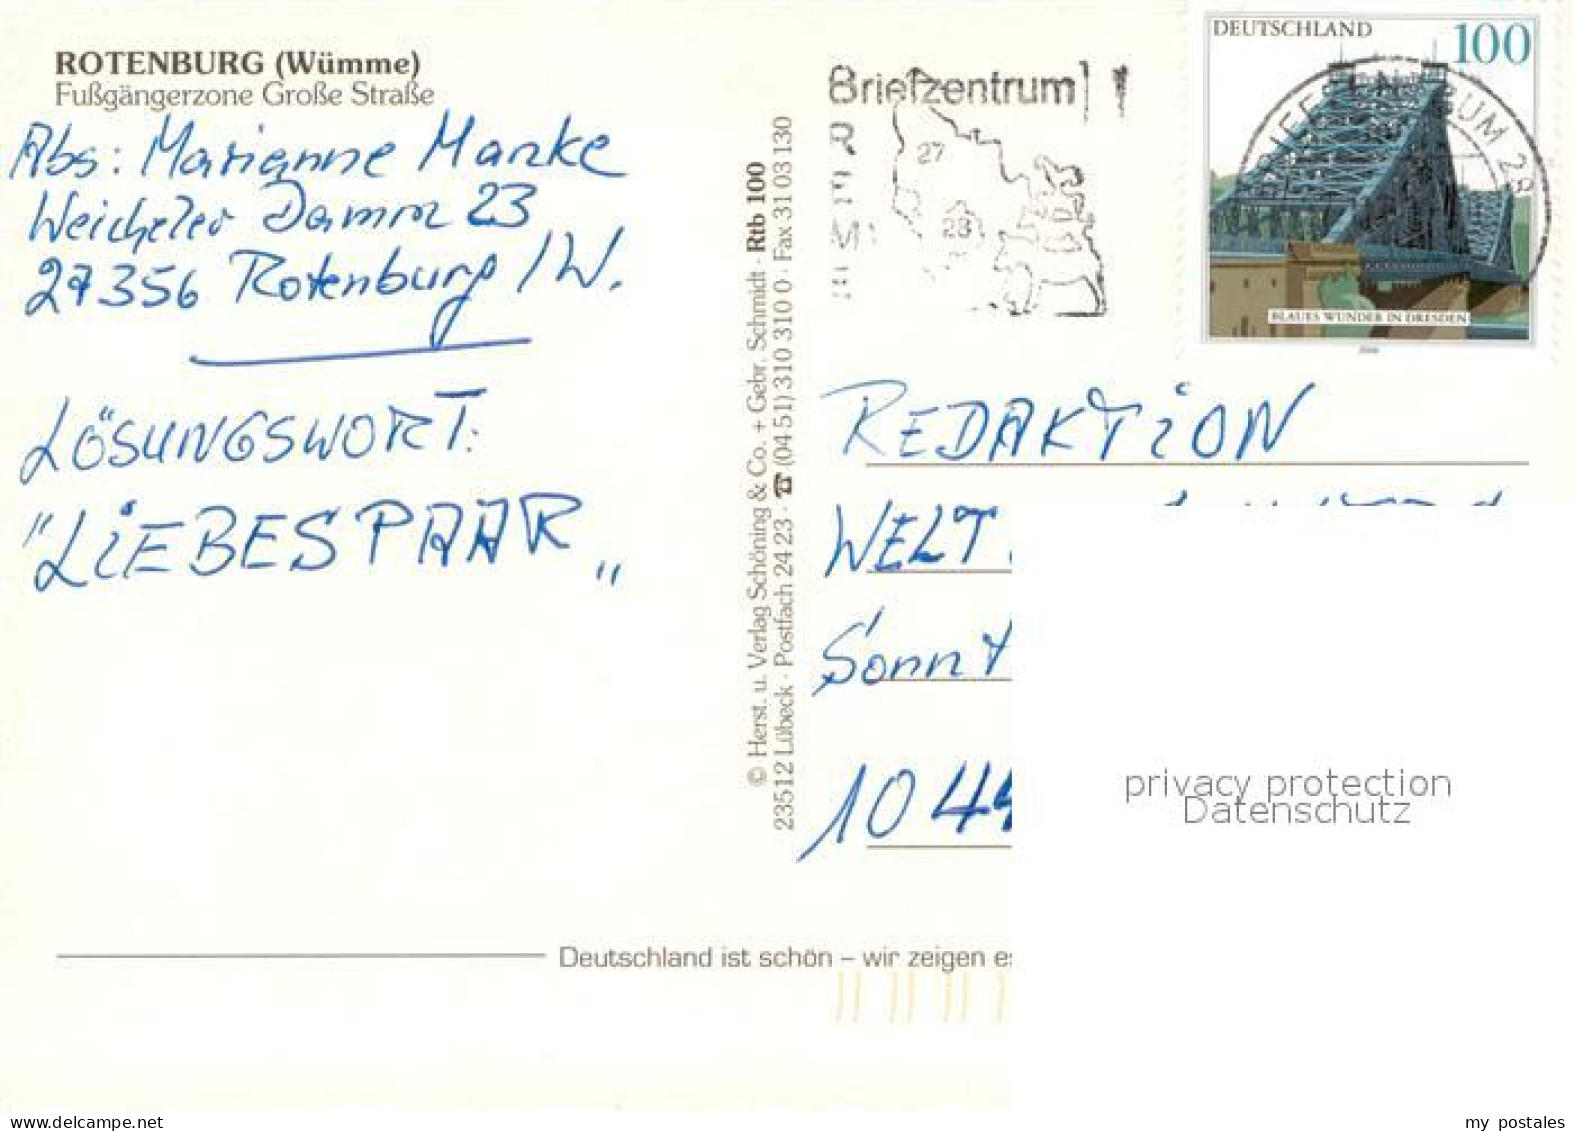 ROTENBURG (Wümme)
Fußgängerzone Große Straße
Abs: Marianne Manke
Weicheler Damm 23
27356 Rotenburg / W.
LÖSUNGSWORT:
"LIEBESPAAR"
© Herst. u. Verlag Schöning & Co. + Gebr. Schmidt · Rtb 100
23512 Lübeck · Postfach 24 23 · ☎ (04 51) 310 310 0 · Fax 31 03 130
Briefzentrum
27
28
DEUTSCHLAND 100
BRIEFZENTRUM 28
BLAUES WUNDER IN DRESDEN
2000
REDAKTION
WELT
Sonnt
10 44
privacy protection
Datenschutz
Deutschland ist schön – wir zeigen es
www.delcampe.net
my postales